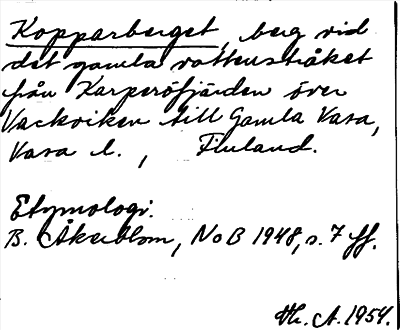 Kopparberget, berg vid
det gamla vattenstråket
från Karperöfjärden över
Vackviken till Gamla Vasa,
Vasa l., Finland.
Etymologi:
B. Åkerblom, NoB 1948, s. 7 ff.
Th. A. 1954.